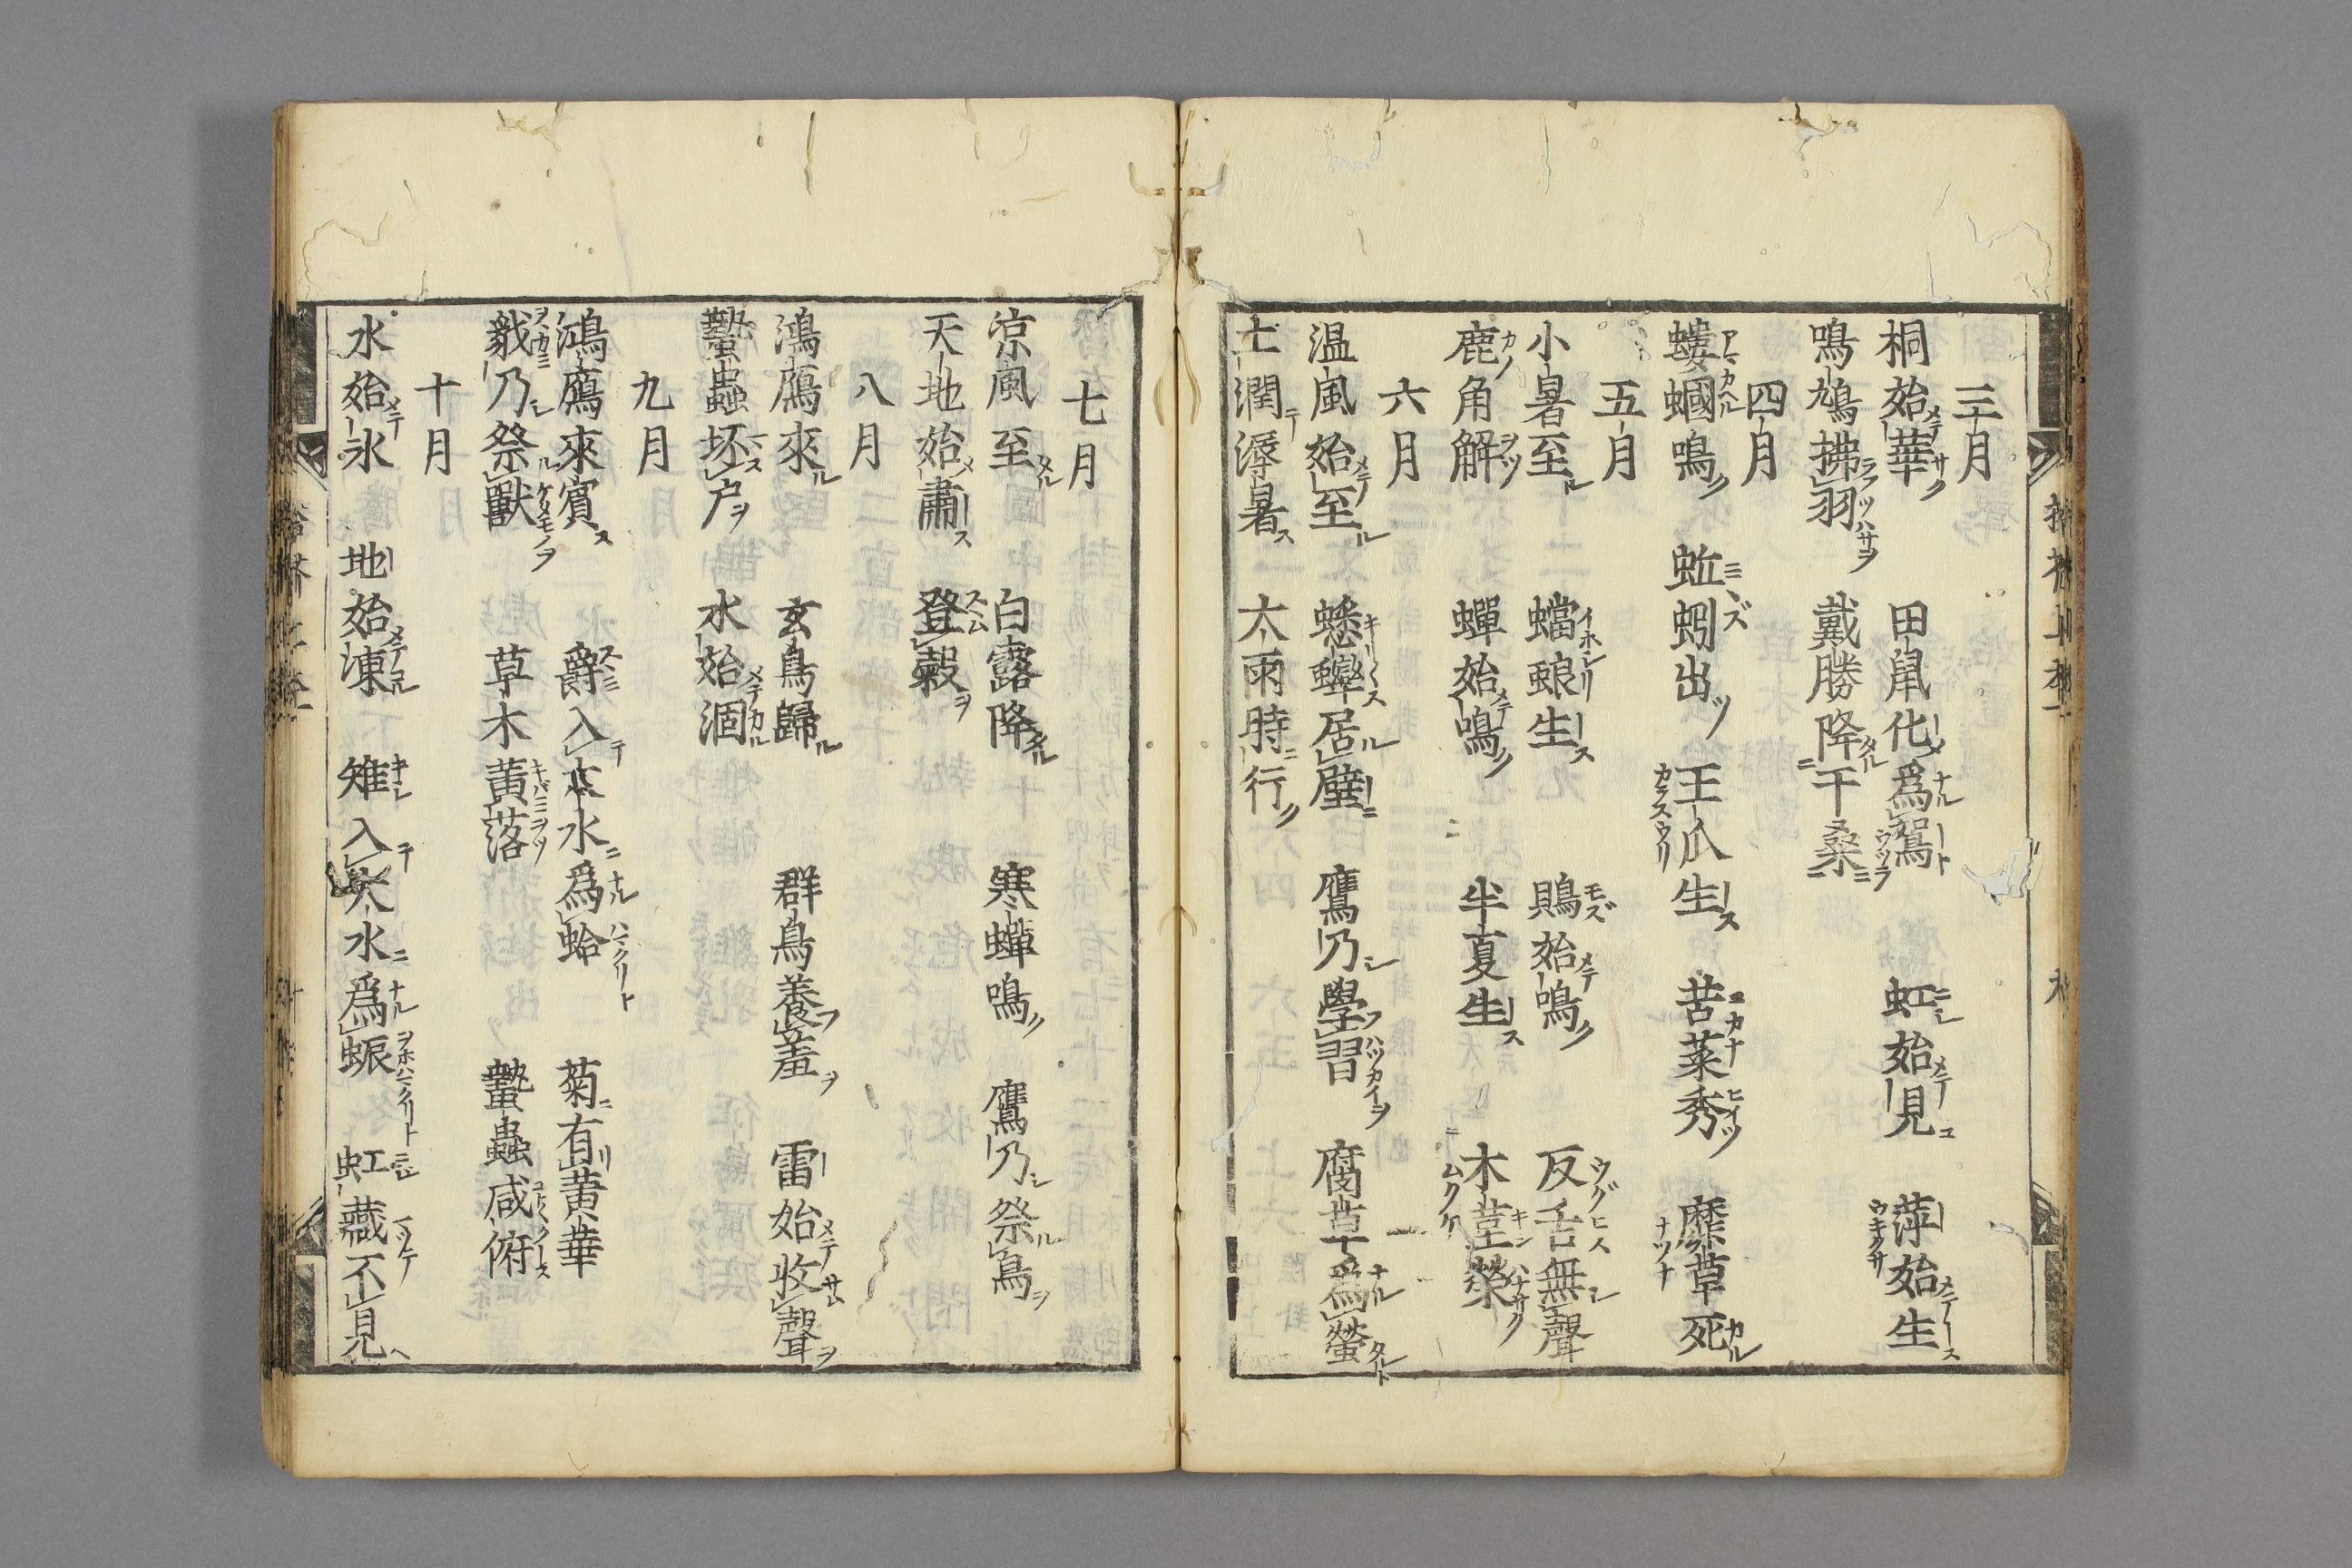 三月
桐始華　田鼠化爲鴽　虹始見　萍始生
鳴鳩拂羽　戴勝降于桑
四月
螻蟈鳴　蚯蚓出　王瓜生　苦菜秀　靡草死
五月
小暑至　螳蜋生　鵙始鳴　反舌無聲
鹿角解　蟬始鳴　半夏生　木菫榮
六月
温風始至　蟋蟀居壁　鷹乃學習　腐草爲螢
土潤溽暑　大雨時行
七月
涼風至　白露降　寒蟬鳴　鷹乃祭鳥
天地始肅　登穀
八月
鴻鴈來　玄鳥歸　群鳥養羞　雷始收聲
蟄蟲坏戸　水始涸
九月
鴻鴈來賓　爵入大水爲蛤　菊有黄華
豺乃祭獸　草木黄落　蟄蟲咸俯
十月
水始氷　地始凍　雉入大水爲蜃　虹藏不見